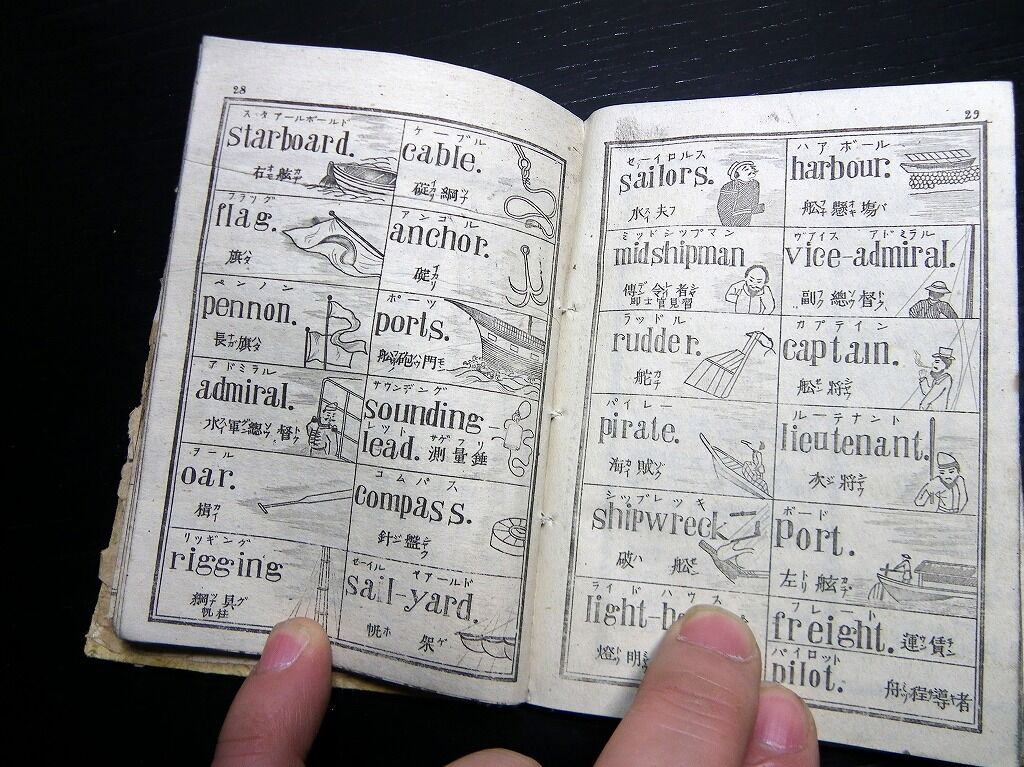 28
スタアールボールド
starboard.
右舷
ケーブル
cable.
碇綱
フラッグ
flag.
旗
アンゴル
anchor.
碇
ペンノン
pennon.
長旗
ポーツ
ports.
舩砲門
アドミラル
admiral.
水軍總督
サウンデング
sounding
レット
lead.
測量錘
ヲール
oar.
楫
コムパス
compass.
針盤
リッギング
rigging
綱具
帆柱
セーイル ヤアールド
sail-yard.
帆架
29
セーイロルス
sailors.
水夫
ハアボール
harbour.
舩懸塲
ミッドシツプマン
midshipman
傳令者
即士官見習
ヴァイス アドミラル
vice-admiral.
副總督
ラッドル
rudder.
舵
カプテイン
captain.
舩將
パイレー
pirate.
海賊
ルーテナント
lieutenant.
次將
シップレッキ
shipwreck
破舩
ポード
port.
左舷
ライドハウス
light-
燈明
フレート
freight.
運賃
パイロット
pilot.
舟程導者